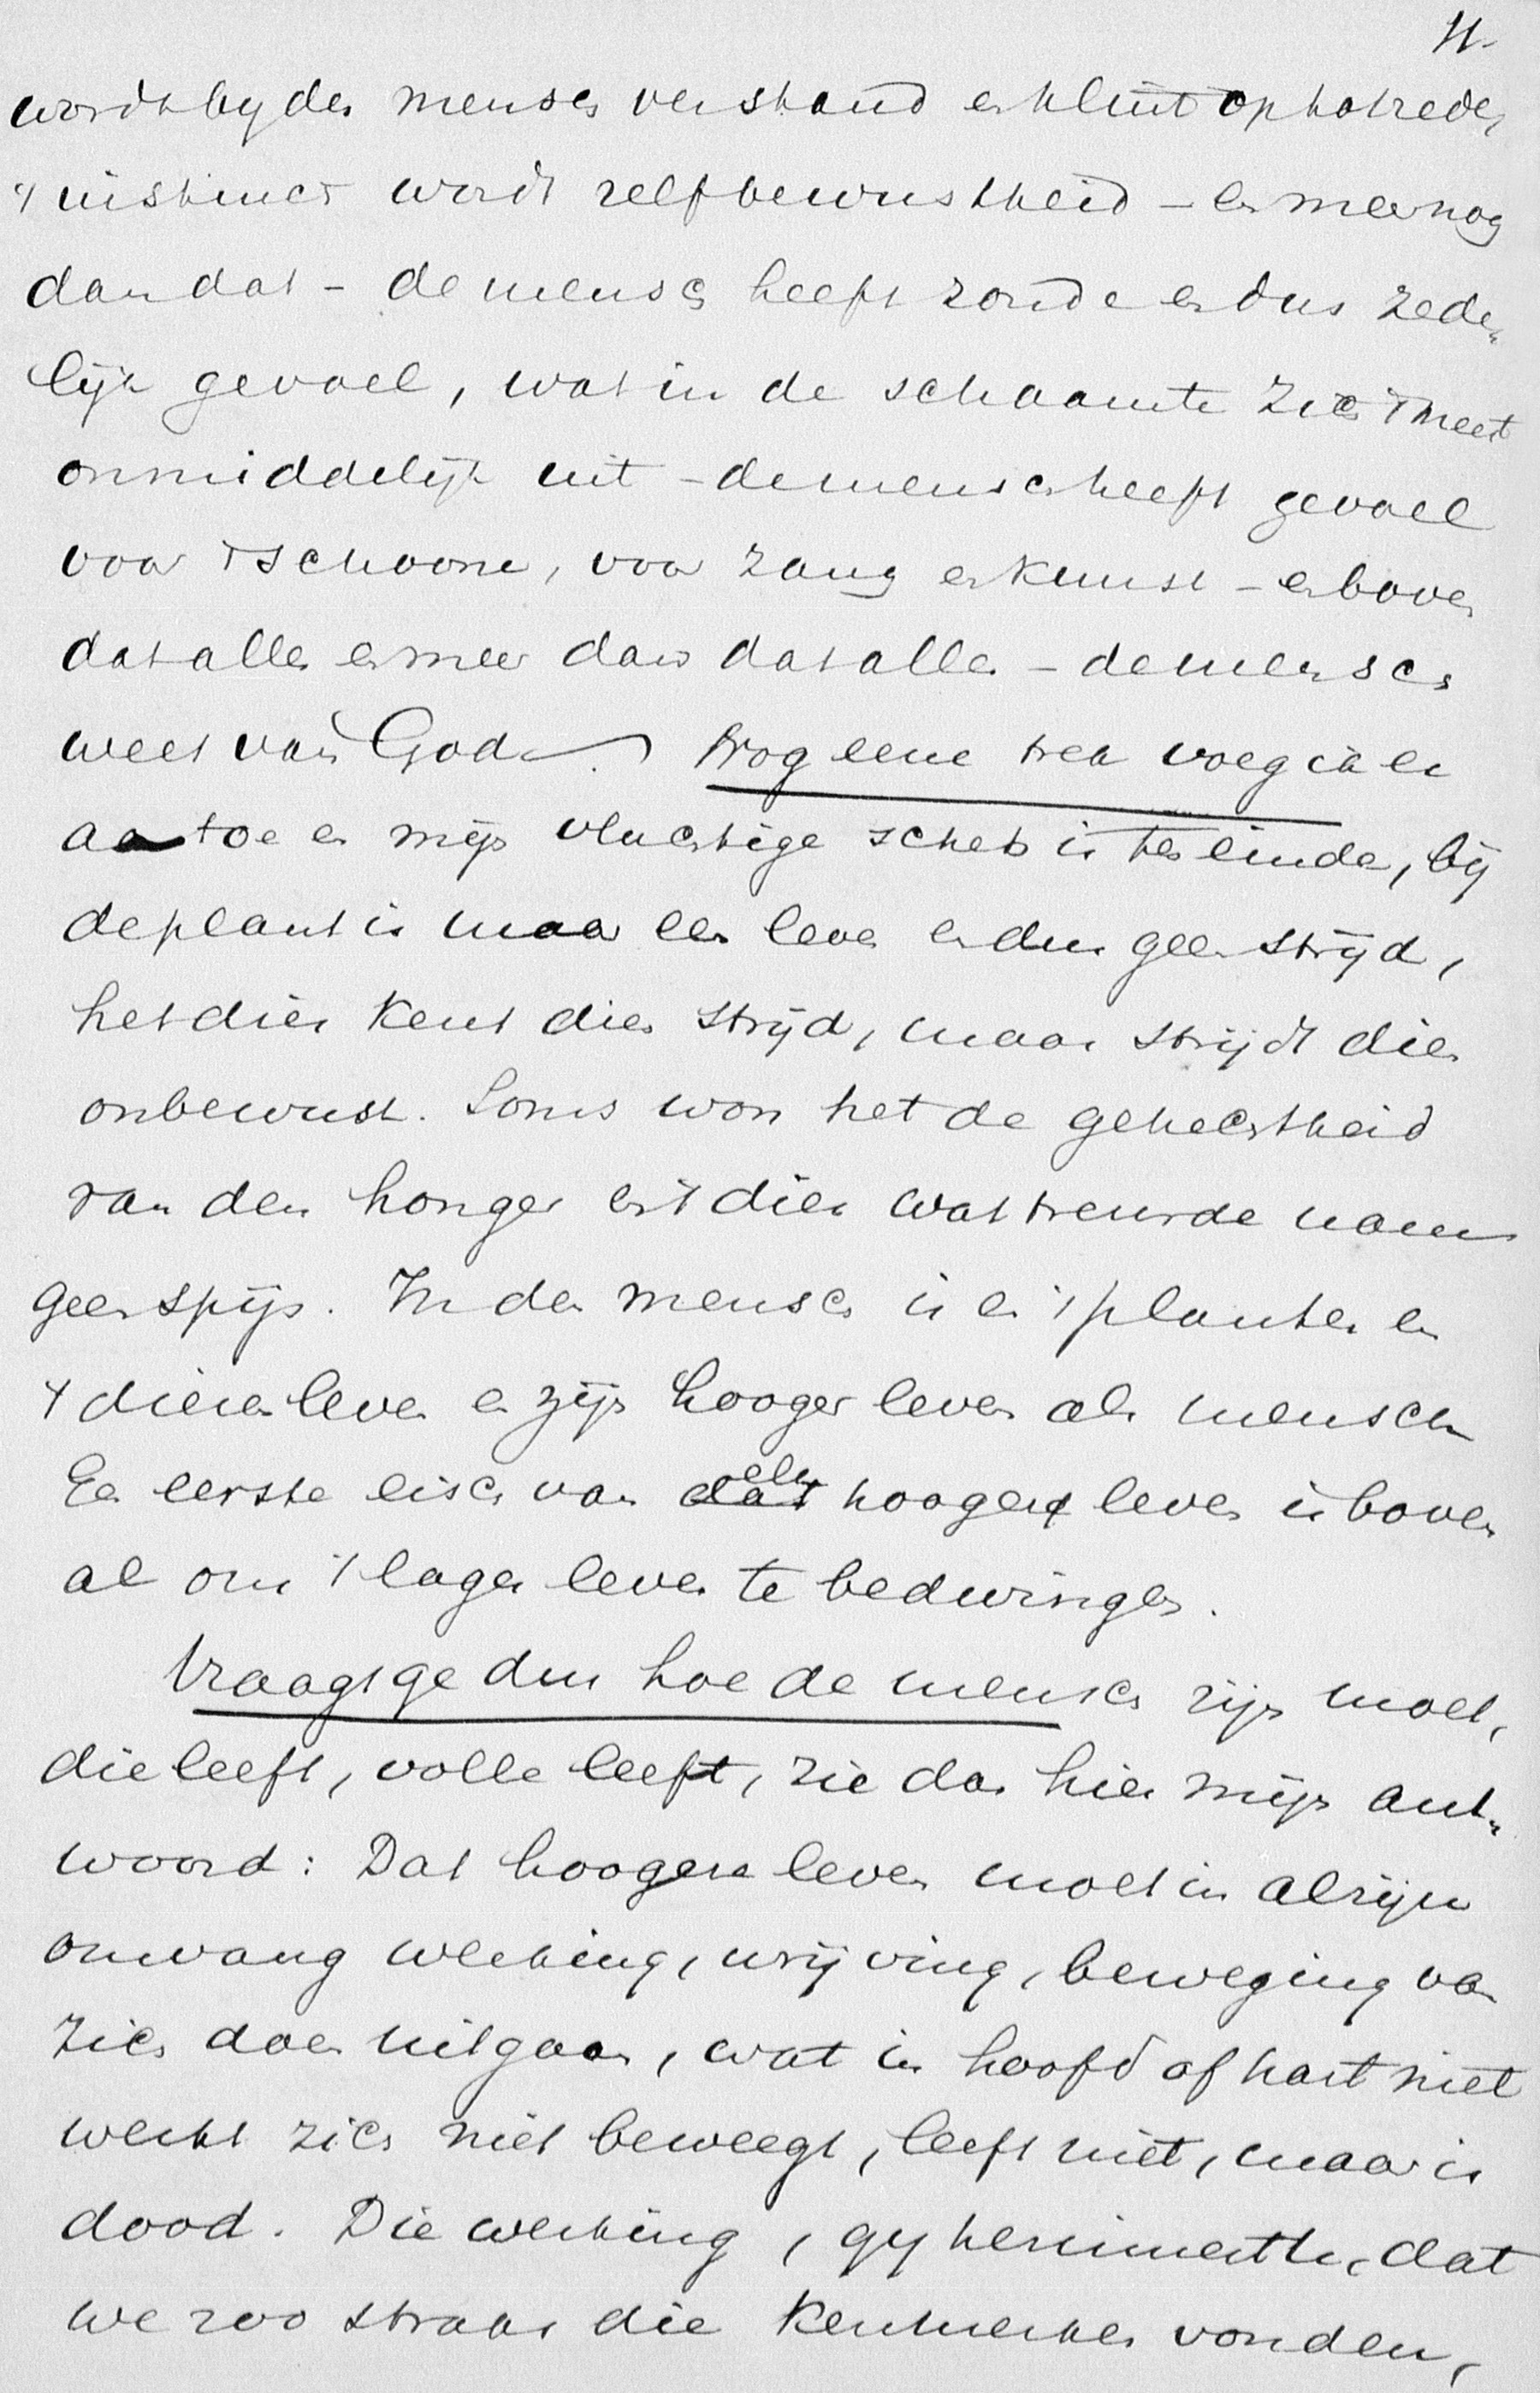 11.
wordt by den mensch verstand en klimt op tot rede,
't instinct wordt zelfbewustheid – en meer nog
dan dat – de mensch heeft zonde en dus zede„
lijk gevoel, wat in de schaamte zich 't meest
onmiddelijk uit – de mensch heeft gevoel
voor 't schoone, voor zang en kunst – en boven
dat alles en meer dan dat alles – de mensch
weet van God. Nog eene trek voeg ik er
aan toe en mijn vluchtige schets is ten einde, bij
de plant is maar een leven en dus geen strijd,
het dier kent dien strijd, maar strijdt dien
onbewust. Soms won het de gehechtheid
van den honger en 't dier wat treurde nam
geen spijs. In den mensch is en 't planten en
't dierenleven en zijn hooger leven als mensch
En eerste eisch van elk hooger leven is boven
al om 't lager leven te bedwingen.
Vraagt ge dus hoe de mensch zijn moet,
die leeft, volle leeft, zie dan hier mijn ant„
woord: Dat hoogere leven moet in al zijn
omvang werking, wrijving, beweging van
zich doen uitgaan, wat in hoofd of hart niet
werkt zich niet beweegt, leeft niet, maar is
dood. Die werking, gy herinnert u, dat
we zoo straks die kenmerken vonden,